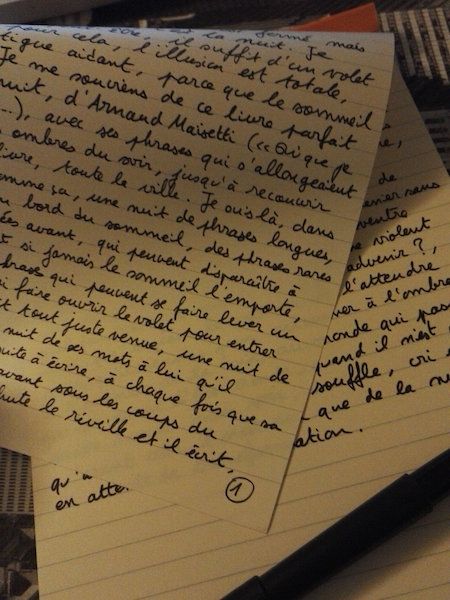 la nuit. Je
pour cela, il suffit d'un volet
tique aidant, l'illusion est totale,
Je me souviens parce que le sommeil
nuit, d'Armand Maisetti de ce livre parfait
...), avec ses phrases (« Qui que je
ombres du soir, qui s'allongeaient
livre, toute la ville. jusqu'à recouvrir
comme ça, une nuit de Je suis là, dans
au bord du sommeil, des phrases longues,
avant, qui peuvent disparaître à phrases rares
si jamais le sommeil l'emporte,
phrases qui peuvent se faire lever un
si faire ouvrir le volet pour entrer
tout juste venue, une nuit de
nuit de ses mots à lui qu'il
suite à écrire, à chaque fois que sa
avant sous les coups du
chute le réveille et il écrit,
1
de
sans
ventre
violent
advenir ?,
l'attendre
à l'ombre
ronde qui pas
quand il n'est
souffle, cri
que de la nu
ation.
qu'
en atte